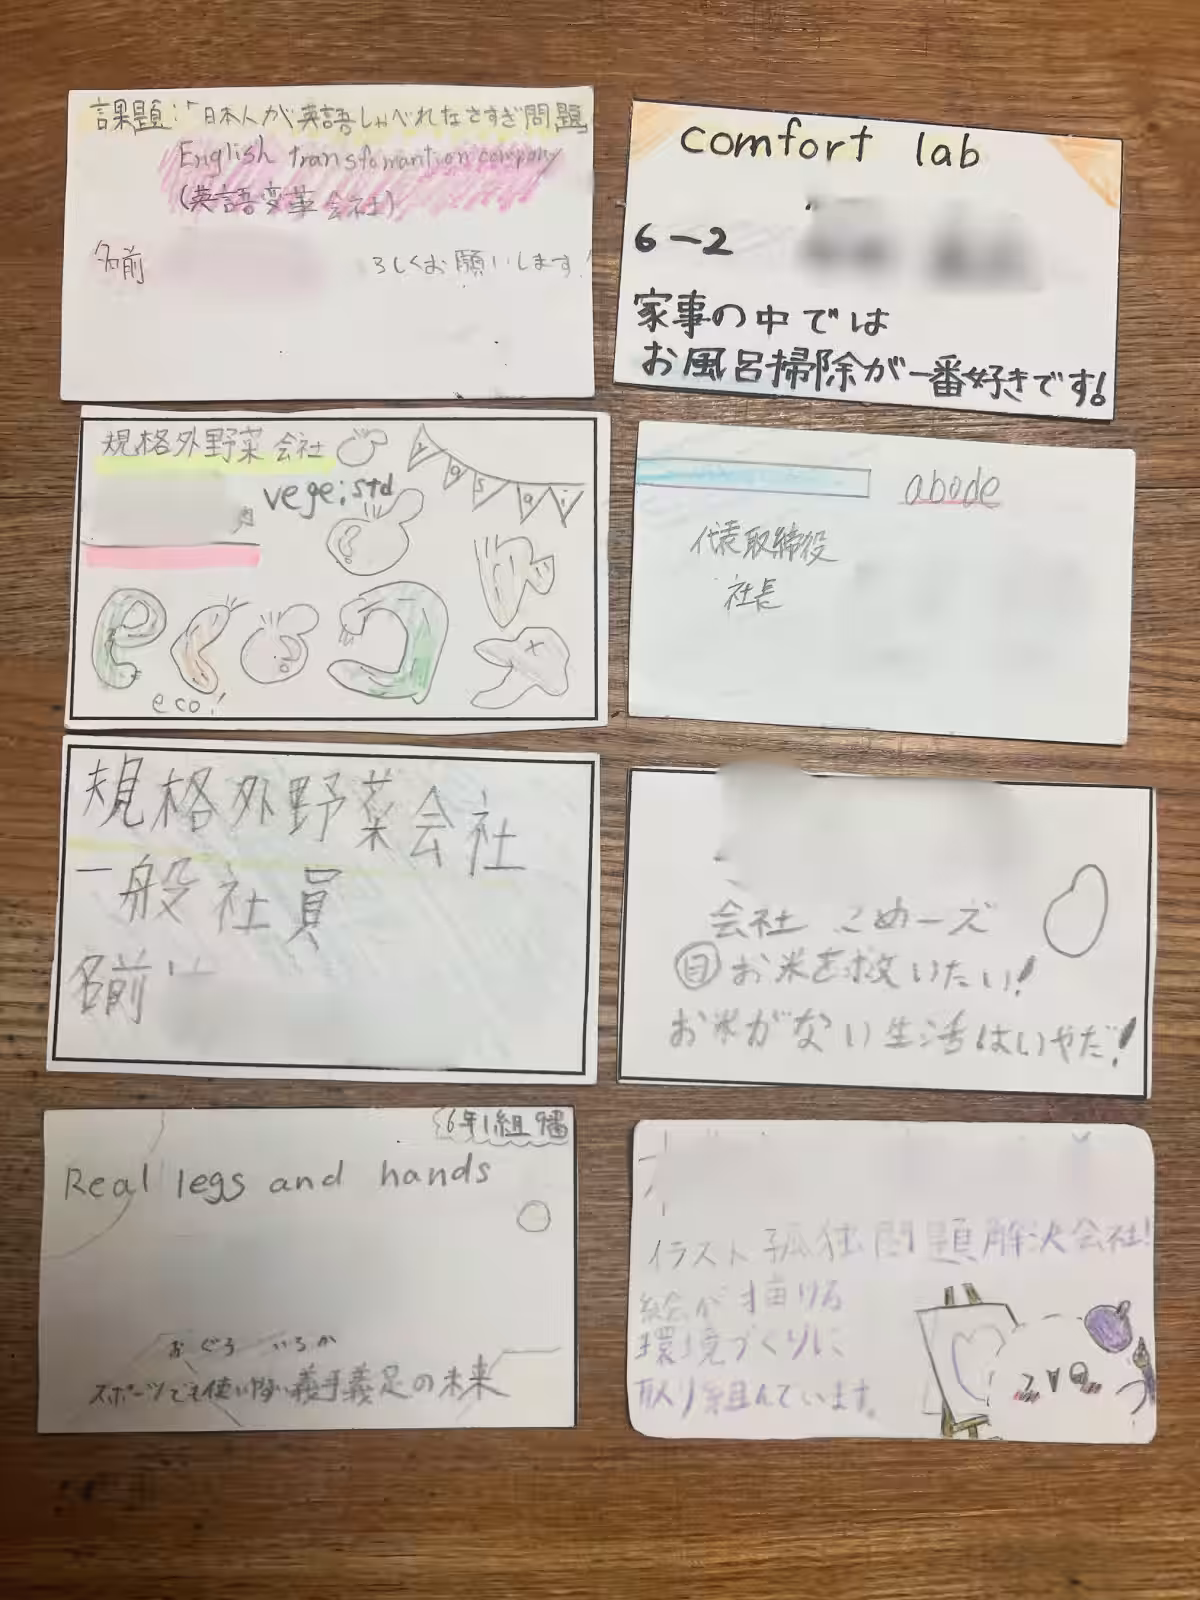 課題:「日本人が英語しゃべれなさすぎ問題
English transfomantion company
(英語変革会社)
名前
ろしくお願いします!
comfort lab
6-2
家事の中では
お風呂掃除が一番好きです!
規格外野菜会社
vege;std
eco!
abode
代表取締役
社長
規格外野菜会社
一般社員
名前
会社 こめーズ
目 お米を救いたい!
お米がない生活はいやだ!
6年1組9番
Real legs and hands
スポーツでも使いやすい義手義足の未来
イラスト孤独問題解決会社!
絵が描ける
環境づくりに
取り組んでいます。